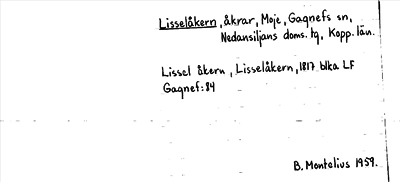 Lisselåkern, åkrar, Moje, Gagnefs sn,
Nedansiljans doms. tg, Kopp. län.
Lissel åkern, Lisselåkern, 1817 blka LF
Gagnef: 84
B. Montelius 1959.